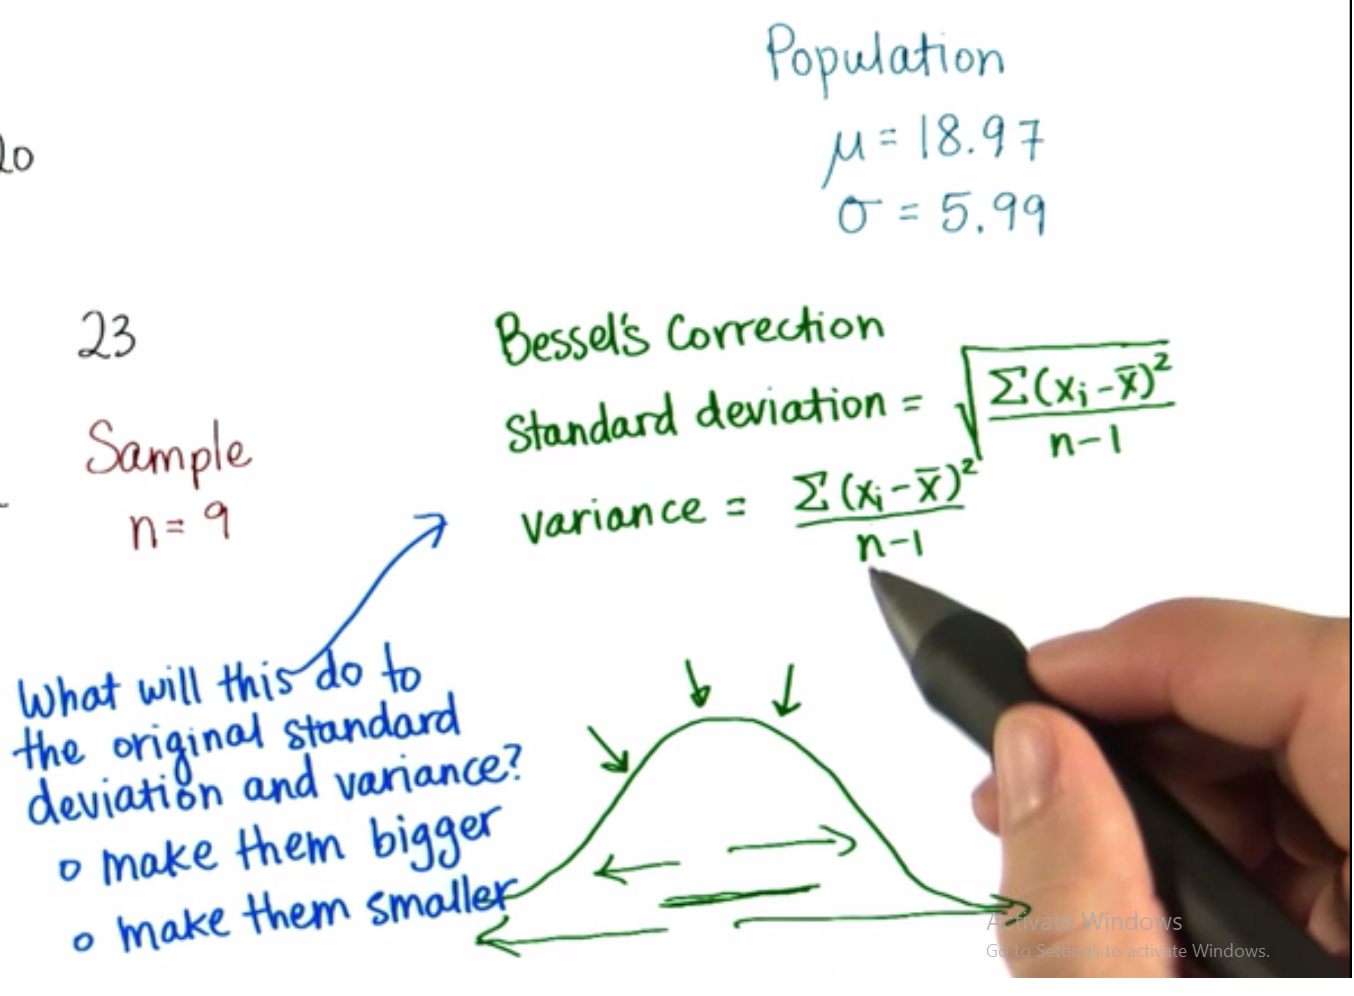 Population
20
μ = 18.97
σ = 5.99
23
Bessel's Correction
Standard deviation = √ Σ(xᵢ - x̄)² / n-1
Sample
n = 9
variance = Σ(xᵢ - x̄)² / n-1
What will this do to
the original standard
deviation and variance?
o make them bigger
o make them smaller
Activate Windows
Go to Settings to activate Windows.